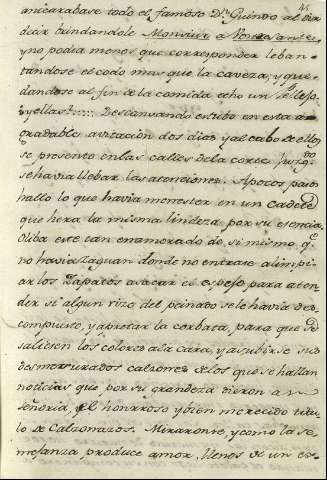 45
anicarabase todo el famoso Dn. Guindo al oir
decir brindandole Monsiur a Votre sante,
y no podia menos que corresponder leban-
tandose el codo mas que la caveza, y que-
dandose al fin de la comida echo un
y ellas?..... Descansando estubo en esta a-
gradable avitacion dos dias y al cabo de ellos
se presento en las calles de la corte
se havia llebar las atenciones. A pocos pasos
hallo lo que havia menester en un cadete
que hera la misma lindeza por su esencia.
Oiba este tan enamorado de si mismo q.e
no havia zaguan donde no entrase a limpi-
ar los Zapatos a sacar el espejo para aten-
der si algun rizo del peinado se le havia des-
compuesto, y apretar la corbata, para que le
saliesen los colores a la cara, y a subirse sus
desmesurados calzones de los que se hallan
noticias que por su grandeza dieron a su
señoria, el honrroso y bien merecido titu-
lo de Calzonazos. Miraronse, y como la se-
mejanza produce amor, llenos de un es-